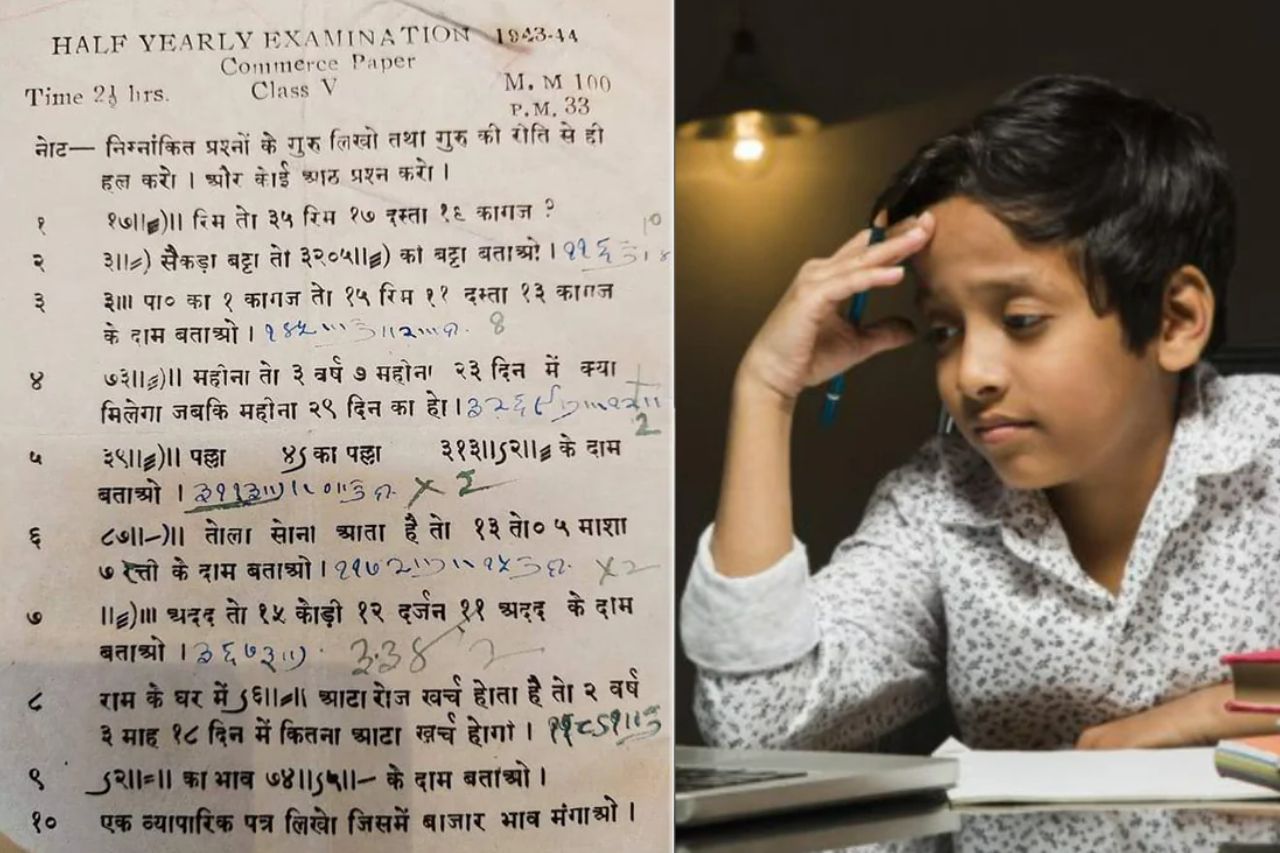 HALF YEARLY EXAMINATION 1943-44
Commerce Paper
Time 2½ hrs. Class V M. M 100
P.M. 33
नोट— निम्नांकित प्रश्नों के गुरु लिखो तथा गुरु की रीति से ही
हल करो । और कोई आठ प्रश्न करो ।
१ १७॥≡)॥ रिम तो ३५ रिम १७ दस्ता १६ कागज ?
10
२ ३॥=) सैकड़ा बट्टा तो ३२०५॥≡) का बट्टा बताओ ।
३ ३॥। पा० का १ कागज तो १५ रिम ११ दस्ता १३ कागज
के दाम बताओ । 8
४ ७३॥≡)॥ महीना तो ३ वर्ष ७ महीना २३ दिन में क्या
मिलेगा जबकि महीना २९ दिन का हो ।
2
५ ३९॥≡)॥ पल्ला ४ऽ का पल्ला ३१३॥ऽ२॥≡ के दाम
बताओ । × 2
६ ८७॥-)॥ तोला सोना आता है तो १३ तो० ५ माशा
७ रत्ती के दाम बताओ । ×2
७ ॥≡)॥। अदद तो १५ कोड़ी १२ दर्जन ११ अदद के दाम
बताओ ।
८ राम के घर में ऽ६॥=॥ आटा रोज खर्च होता है तो २ वर्ष
३ माह १८ दिन में कितना आटा खर्च होगा ।
९ ऽ२॥=॥ का भाव ७४॥ऽ५॥- के दाम बताओ ।
१० एक व्यापारिक पत्र लिखो जिसमें बाजार भाव मंगाओ ।